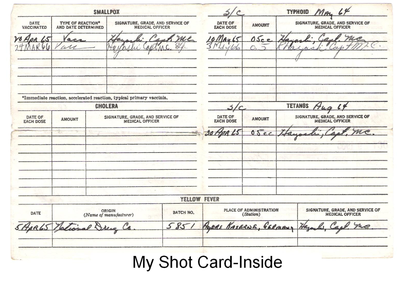 SMALLPOX
DATE VACCINATED
TYPE OF REACTION* AND DATE DETERMINED
SIGNATURE, GRADE, AND SERVICE OF MEDICAL OFFICER
20 Apr 65 Hayashi, Capt. MC
29 MAR 66
*Immediate reaction, accelerated reaction, typical primary vaccinia.
S/C TYPHOID May 64
DATE OF EACH DOSE
AMOUNT
SIGNATURE, GRADE, AND SERVICE OF MEDICAL OFFICER
10 May 65 05cc Hayashi, Capt. MC
CHOLERA
DATE OF EACH DOSE
SIGNATURE, GRADE, AND SERVICE OF MEDICAL OFFICER
S/C TETANUS Aug 64
DATE OF EACH DOSE
AMOUNT
SIGNATURE, GRADE, AND SERVICE OF MEDICAL OFFICER
20 Apr 65 05cc Hayashi, Capt. MC
YELLOW FEVER
DATE
ORIGIN (Name of manufacturer)
BATCH NO.
PLACE OF ADMINISTRATION (Station)
SIGNATURE, GRADE, AND SERVICE OF MEDICAL OFFICER
5 Apr 65 National Drug Co. 5851 Germany Hayashi, Capt MC
My Shot Card-Inside